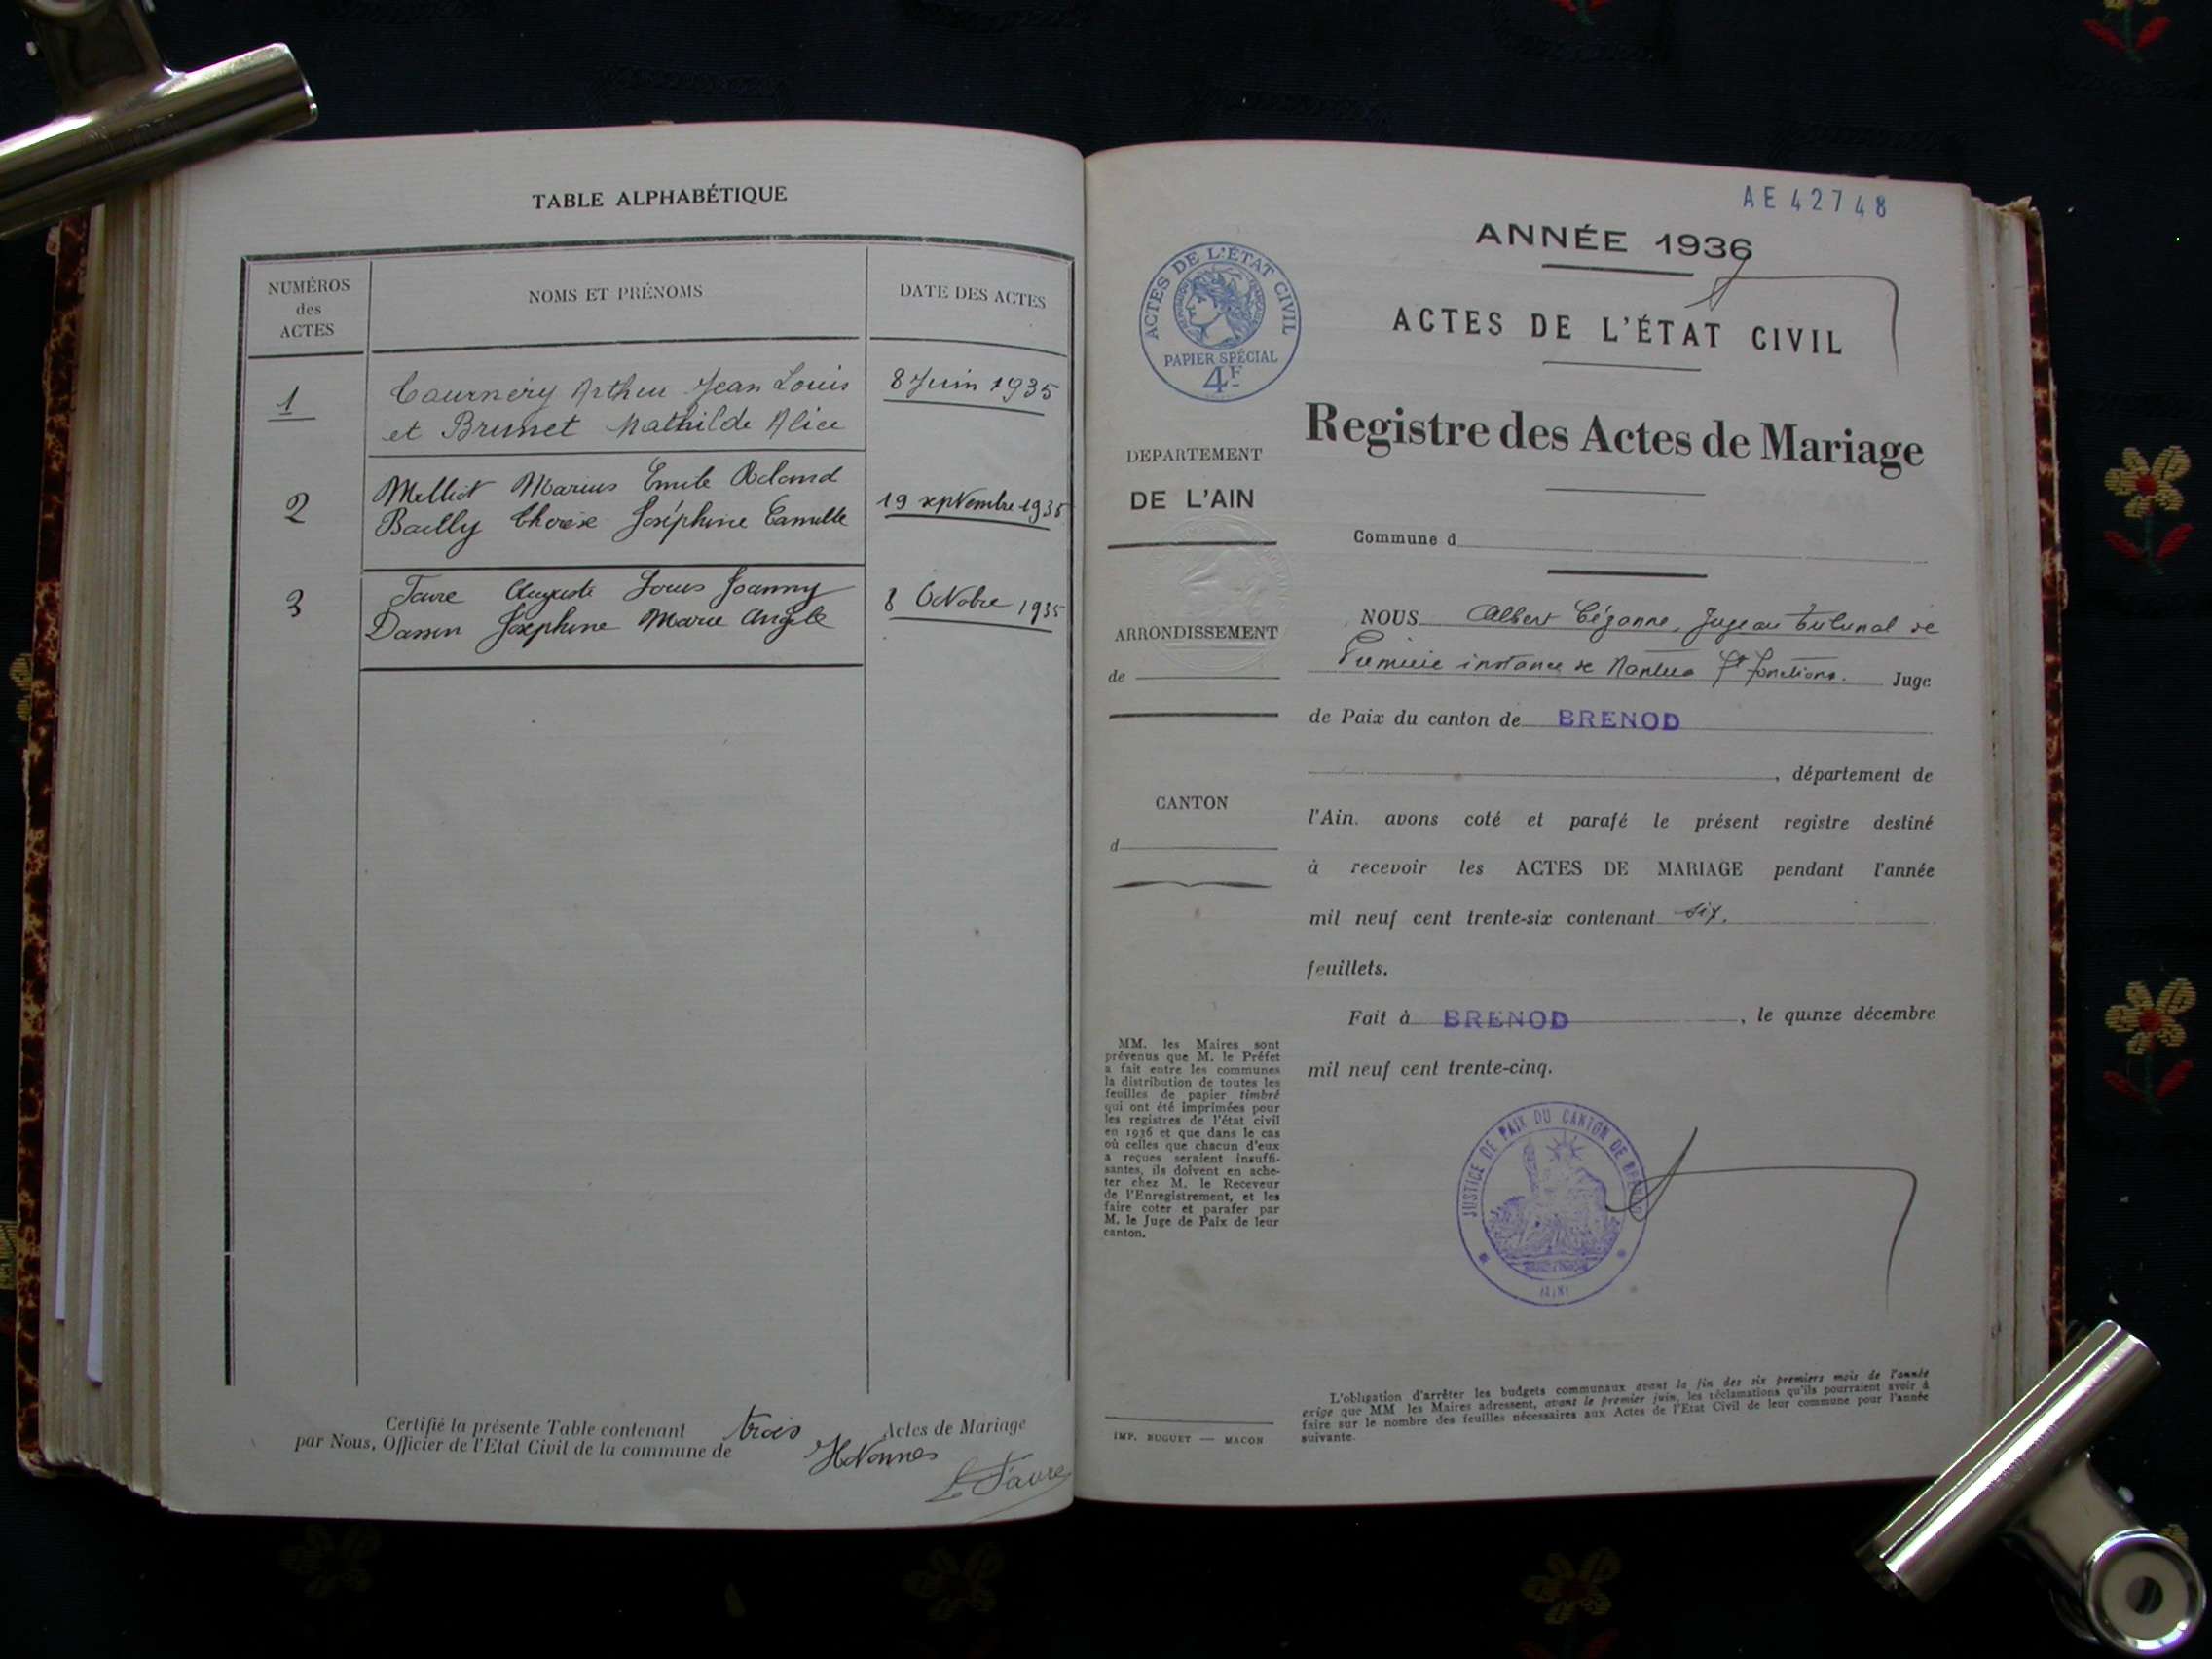 TABLE ALPHABÉTIQUE
NUMÉROS
des
ACTES
NOMS ET PRÉNOMS
DATE DES ACTES
1
Cournéry Arthur Jean Louis
8 Juin 1935
et Brunet Mathilde Alice
2
Melliet Marius Emile Roland
19 septembre 1935
Bailly Thérèse Joséphine Camille
3
Favre Auguste Louis Joanny
8 Octobre 1935
Josephine Marie Angèle
Certifié la présente Table contenant trois Actes de Mariage
par Nous, Officier de l'Etat Civil de la commune de Hotonnes
Favre
AE 42748
ANNÉE 1936
ACTES DE L'ÉTAT CIVIL
PAPIER SPÉCIAL
4F
ACTES DE L'ÉTAT CIVIL
Registre des Actes de Mariage
DEPARTEMENT
DE L'AIN
Commune d
ARRONDISSEMENT
de
CANTON
d
NOUS Albert Cézanne, Juge au tribunal de
Première instance de Nantua fonctions. Juge
de Paix du canton de BRENOD
, département de
l'Ain. avons coté et parafé le présent registre destiné
à recevoir les ACTES DE MARIAGE pendant l'année
mil neuf cent trente-six contenant six.
feuillets.
Fait à BRENOD, le quinze décembre
mil neuf cent trente-cinq.
JUSTICE DE PAIX DU CANTON DE BRENOD
(AIN)
MM. les Maires sont
prévenus que M. le Préfet
a fait entre les communes
la distribution de toutes les
feuilles de papier timbré
qui ont été imprimées pour
les registres de l'état civil
en 1936 et que dans le cas
où celles que chacun d'eux
a reçues seraient insuffi-
santes, ils doivent en ache-
ter chez M. le Receveur
de l'Enregistrement, et les
faire coter et parafer par
M. le Juge de Paix de leur
canton.
IMP. BUGUET — MACON
L'obligation d'arrêter les budgets communaux avant la fin des six premiers mois de l'année
exige que MM les Maires adressent, avant le premier juin, les réclamations qu'ils pourraient avoir à
faire sur le nombre des feuilles nécessaires aux Actes de l'Etat Civil de leur commune pour l'année
suivante.